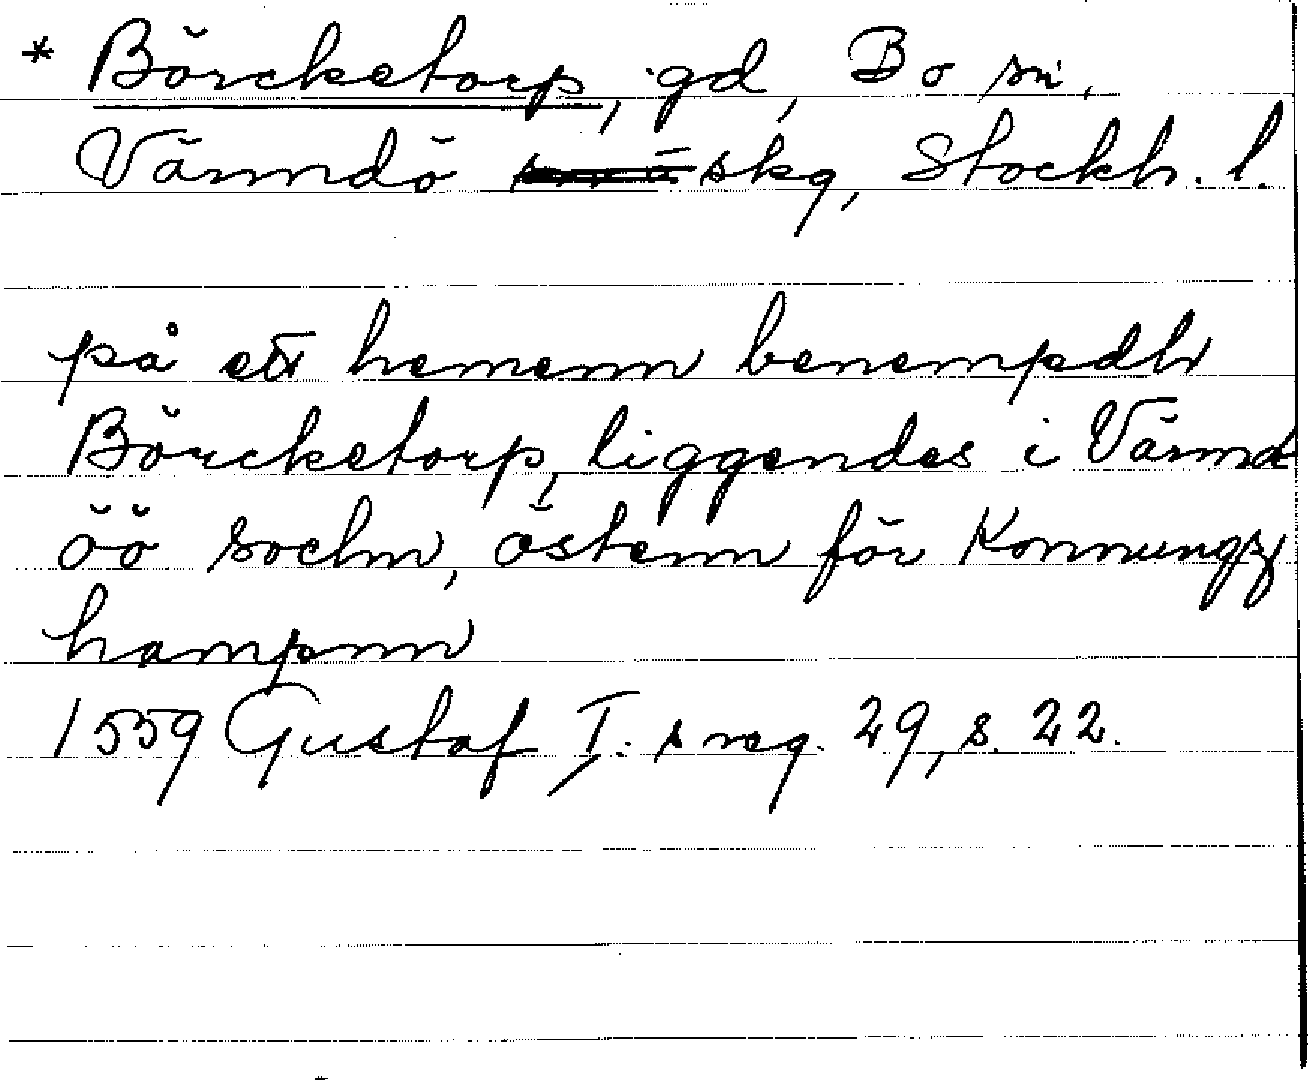 * Börcketorp, gd, Bo sn,
Värmdö skg, Stockh. l.
på ett hemenn benempdh
Börcketorp, liggendes i Värmd
öö sochn, östenn för Konnungx
hampnn
1559 Gustaf I:s reg. 29, s. 22.